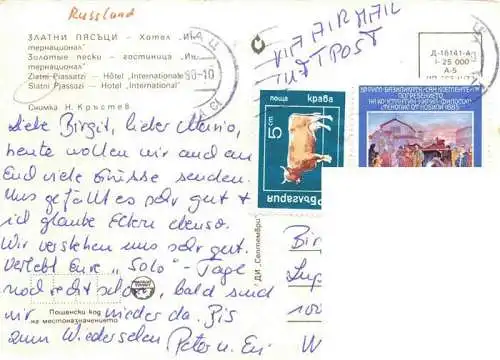 Russland
ЗЛАТНИ ПЯСЪЦИ — Хотел „Ин-
тернационал"
Золотые пески — гостиница „Ин-
тернационал"
Zlatni Piassatzi — Hôtel "Internationale"
Slatni Pjassazi — Hotel "International"
Снимка Н. Кръстев
VIA AIR MAIL
LUFTPOST
Д-16141-А
I-25 000
А-5
90-10
поща крава
5 cm
България
РИМ-БАЗИЛИКАТА „СВ. КЛИМЕНТ"
ПОГРЕБЕНИЕТО
НА КОНСТАНТИН-КИРИЛ ФИЛОСОФ
Liebe Birgit, lieber Mario,
heute wollen wir auch an
End viele Grüsse senden.
Uns gefällt es sehr gut +
ich glaube Eltern ebenso.
Wir verstehen uns sehr gut.
Verlebt Eure „Solo"-Tage
noch recht schön, bald sind
wir wieder da. Bis
zum Wiedersehen Peter u. Evi
ДИ „Септември"
Пощенски код
на местоназначението
Bir
W